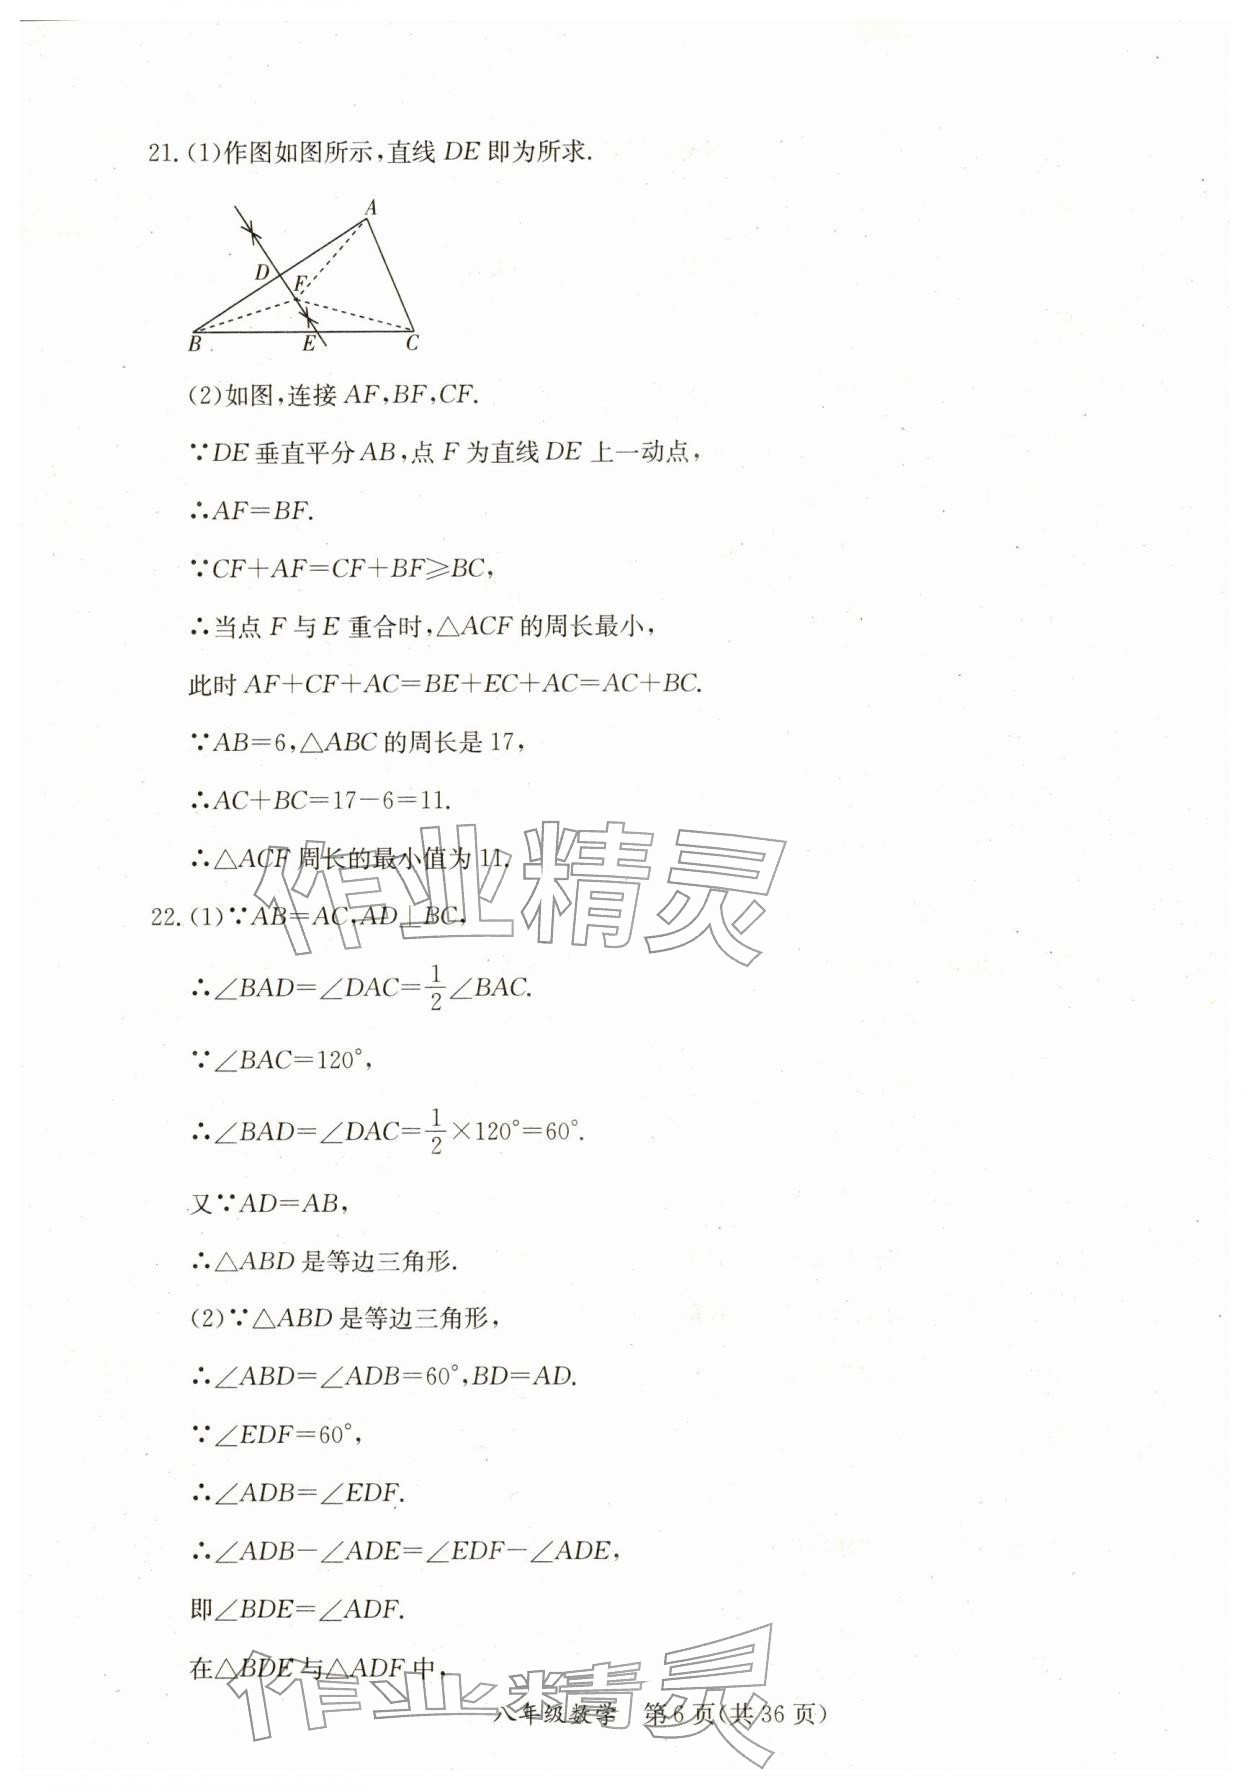 21.(1)作图如图所示,直线 DE 即为所求.
A
D
F
B
E
C
(2)如图,连接 AF,BF,CF.
∵DE 垂直平分 AB,点 F 为直线 DE 上一动点,
∴AF=BF.
∵CF+AF=CF+BF⩾BC,
∴当点 F 与 E 重合时,△ACF 的周长最小,
此时 AF+CF+AC=BE+EC+AC=AC+BC.
∵AB=6,△ABC 的周长是 17,
∴AC+BC=17-6=11.
∴△ACF 周长的最小值为 11.
22.(1)∵AB=AC,AD⊥BC,
∴∠BAD=∠DAC=1/2∠BAC.
∵∠BAC=120°,
∴∠BAD=∠DAC=1/2×120°=60°.
又∵AD=AB,
∴△ABD 是等边三角形.
(2)∵△ABD 是等边三角形,
∴∠ABD=∠ADB=60°,BD=AD.
∵∠EDF=60°,
∴∠ADB=∠EDF.
∴∠ADB-∠ADE=∠EDF-∠ADE,
即∠BDE=∠ADF.
在△BDE 与△ADF 中,
八年级数学 第 6 页(共 36 页)
作业精灵
作业精灵